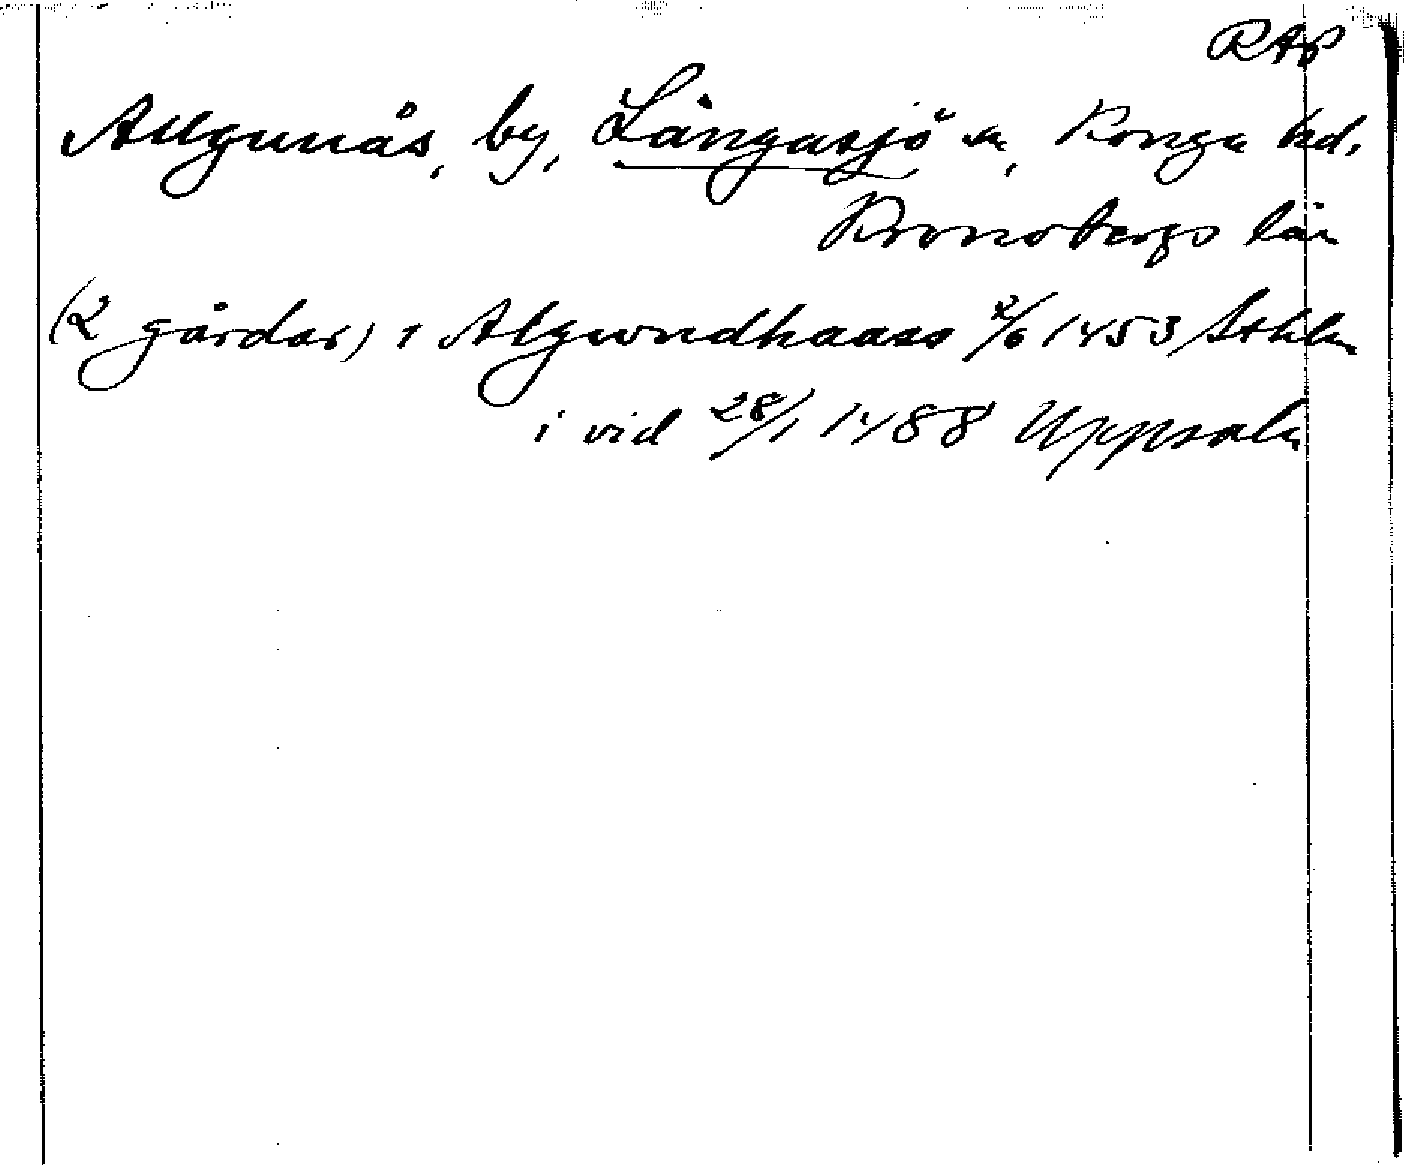 RAP
Allgunås, by, Långasjö sn, Konga hd.
Kronobergs län
(2 gårdar) i Algwndhaass 2/6 1453 Sthlm
i vid 28/1 1488 Uppsala